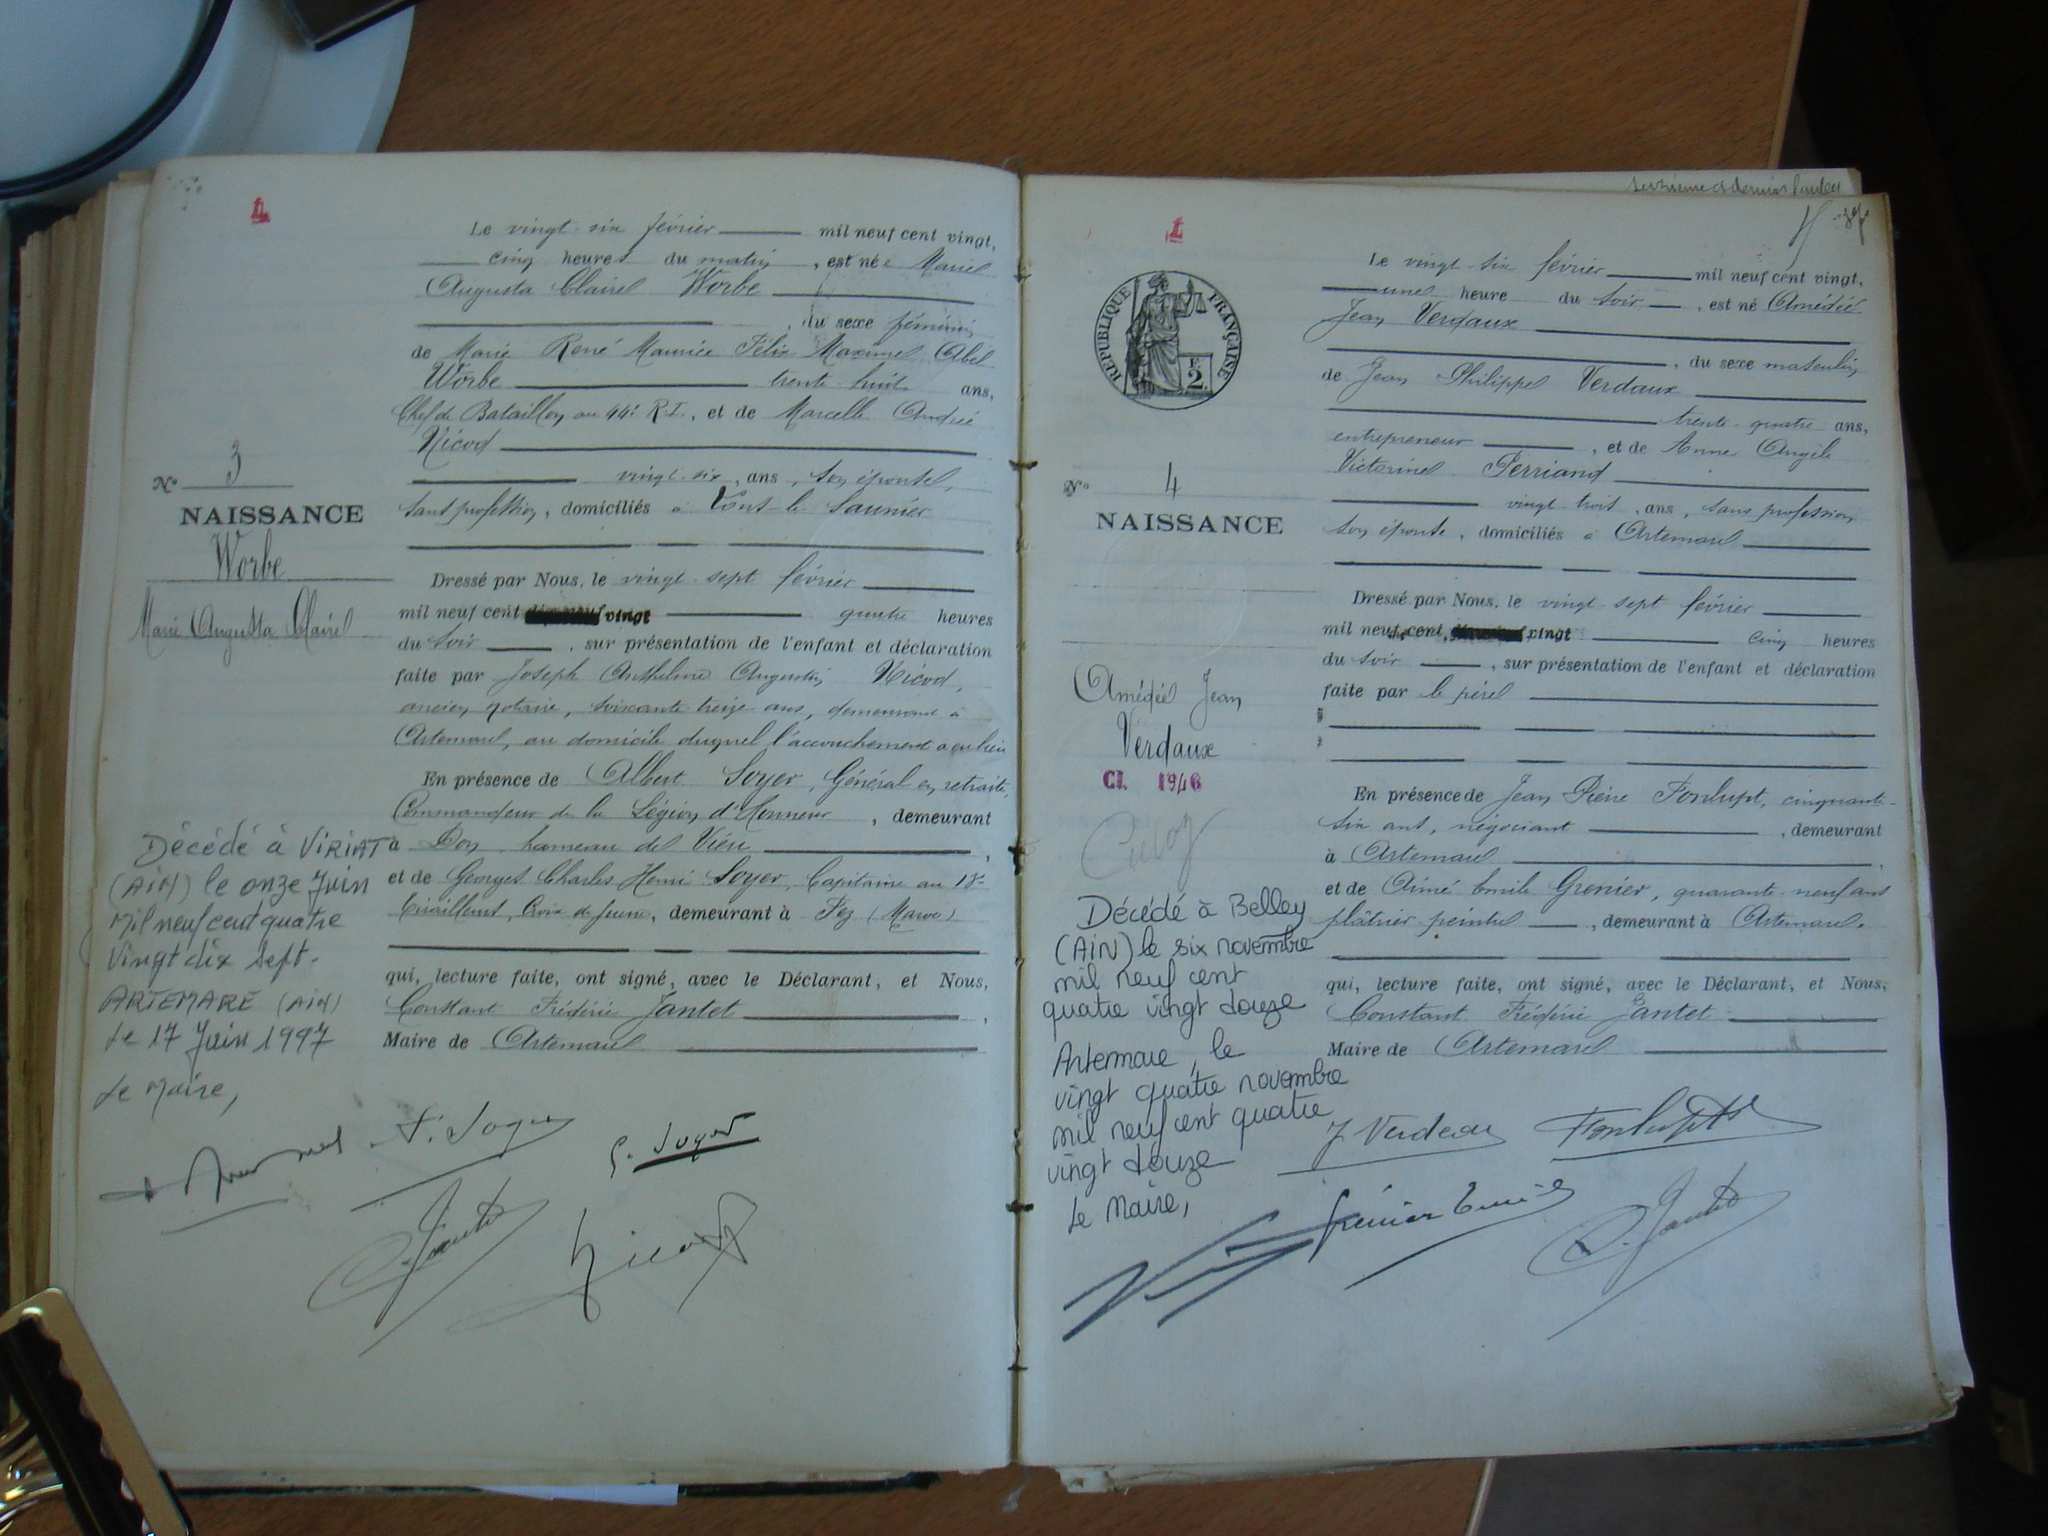 1
Le vingt six février mil neuf cent vingt,
cinq heures du matin, est née Marie
Augusta Claire Worbe
, du sexe féminin
de Marie René Maurice Félix Maxime Abel
Worbe trente huit ans,
Chef de Bataillon au 44e R.I., et de Marcelle Andrée
Nicod
vingt-six, ans, son épouse,
sans profession, domiciliés à Lons-le-Saunier
N° 3
NAISSANCE
Worbe
Marie Augusta Claire
Dressé par Nous, le vingt sept février
mil neuf cent vingt quatre heures
du soir, sur présentation de l'enfant et déclaration
faite par Joseph Anthelme Augustin Nicod,
ancien notaire, soixante treize ans, demeurant à
Artemare, au domicile duquel l'accouchement a eu lieu
En présence de Albert Soyer, Général en retraite,
Commandeur de la Légion d'Honneur, demeurant
à Don hameau de Vieu,
et de Georges Charles Henri Soyer, Capitaine au 18e
Tirailleurs, Croix de Guerre, demeurant à Fez (Maroc)
qui, lecture faite, ont signé, avec le Déclarant, et Nous,
Constant Frédéric Jantet,
Maire de Artemare
Décédé à VIRIAT
(AIN) le onze Juin
mil neuf cent quatre
vingt dix sept.
ARTEMARE (AIN)
Le 17 Juin 1997
Le Maire,
Soyer
G. Soyer
C. Jantet
Nicod
1
37
RÉPUBLIQUE FRANÇAISE
2 F.
Le vingt-six février mil neuf cent vingt,
une heure du soir, est né Amédée
Jean Verdaux
, du sexe masculin
de Jean Philippe Verdaux
trente-quatre ans,
entrepreneur, et de Anne Angèle
Victorine Perriand
vingt trois, ans, sans profession
son épouse, domiciliés à Artemare
N° 4
NAISSANCE
Amédée Jean
Verdaux
Cl. 1940
Culoz
Dressé par Nous, le vingt sept février
mil neuf cent, vingt cinq heures
du soir, sur présentation de l'enfant et déclaration
faite par le père
En présence de Jean Pierre Fonlupt, cinquante-
six ans, négociant, demeurant
à Artemare,
et de Aimé Emile Grenier, quarante-neuf ans
plâtrier peintre, demeurant à Artemare.
qui, lecture faite, ont signé, avec le Déclarant, et Nous,
Constant Frédéric Jantet
Maire de Artemare
Décédé à Belley
(AIN) le six novembre
mil neuf cent
quatre vingt douze
Artemare, le
vingt quatre novembre
mil neuf cent quatre
vingt douze
Le Maire,
J Verdeau
Fonlupt
Grenier Emile
C. Jantet